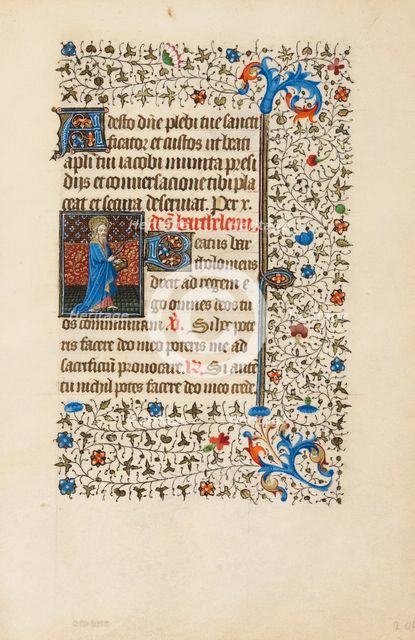 Adesto dñe plebi tue sancti
ficator et custos ut beati
apli tui iacobi munita presi
diis et conversacione tibi pla
ceat et secura deserviat. Per x.
De s. barthelemi.
Beatus bar
tholomeus
dixit ad regem e
go omnes deos tu
os comminuam. V. Si la pote
ris facere deo meo poteris me ad
sacrificiũ provocare. R. Si autẽ
tu nichil potes facere deo meo crede